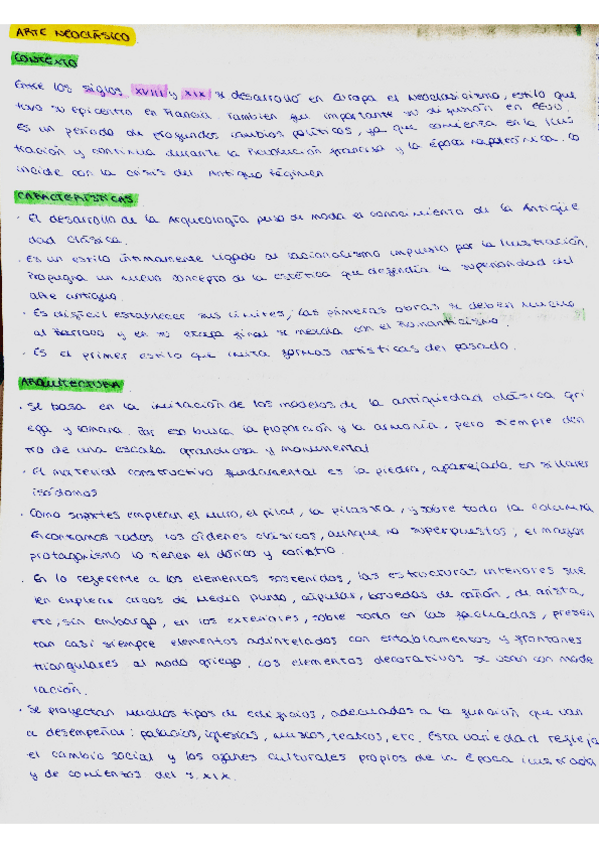 ARTE NEOCLÁSICO
CONTEXTO
Entre los siglos XVIII y XIX se desarrolló en Europa el Neoclasicismo, estilo que
tuvo su epicentro en Francia. También fue importante su difusión en EEUU.
Es un periodo de profundos cambios políticos, ya que comienza en la Ilus
tración y continua durante la Revolución francesa y la época napoleónica. Co
incide con la crisis del Antiguo Régimen
CARACTERÍSTICAS
· El desarrollo de la Arqueología puso de moda el conocimiento de la Antigüe
dad Clásica.
· Es un estilo íntimamente ligado al racionalismo impuesto por la Ilustración.
Propugna un nuevo concepto de la estética que defendía la superioridad del
arte antiguo.
· Es difícil establecer sus límites, las primeras obras se deben mucho
al Barroco y en su etapa final se mezcla con el Romanticismo.
· Es el primer estilo que imita formas artísticas del pasado.
ARQUITECTURA
· Se basa en la imitación de los modelos de la antigüedad clásica gri
ega y romana. Por eso busca la proporción y la armonía, pero siempre den
tro de una escala grandiosa y monumental
· El material constructivo fundamental es la piedra, aparejada en sillares
isódomos
· Como soportes emplean el muro, el pilar, la pilastra, y sobre todo la columna
Encontamos todos los órdenes clásicos, aunque no superpuestos, el mayor
protagonismo lo tienen el dórico y corintio.
· En lo referente a los elementos sostenidos, las estructuras interiores sue
len emplear arcos de medio punto, cúpulas, bóvedas de cañón, de arista,
etc, sin embargo, en los exteriores, sobre todo en las fachadas, presen
tan casi siempre elementos adintelados con entablamentos y frontones
triangulares al modo griego. Los elementos decorativos se usan con mode
ración.
· Se proyectan muchos tipos de edificios, adecuados a la función que van
a desempeñar: palacios, iglesias, museos, teatros, etc. Esta variedad refleja
el cambio social y los afanes culturales propios de la Época Ilustrada
y de comientos del s. XIX.